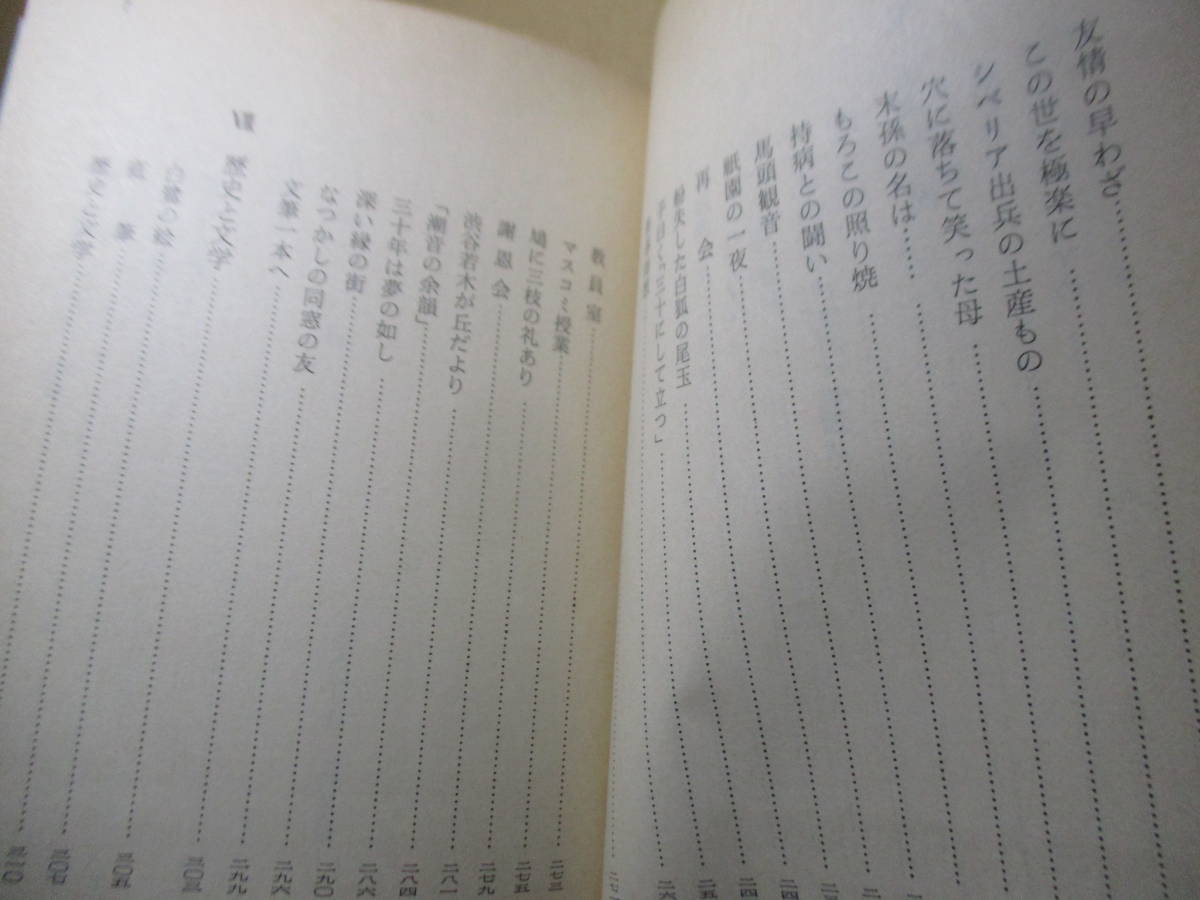 友情の早わざ
この世を極楽に
シベリア出兵の土産もの
穴に落ちて笑った母
末孫の名は
もろこの照り焼
持病との闘い
馬頭観音
祇園の一夜
再会
紛失した白狐の尾玉
子曰く「三十にして立つ」
教員室
マスコミ授業 二七三
鳩に三枝の礼あり 二七五
謝恩会 二七九
渋谷若木が丘だより 二八一
「潮音の余韻」 二八四
三十年は夢の如し 二八六
深い緑の街 二九〇
なつかしの同窓の友 二九六
文筆一本へ 二九九
Ⅷ 歴史と文学 三〇三
白鷺の絵 三〇五
直筆 三〇七
歴史と文学 三一〇